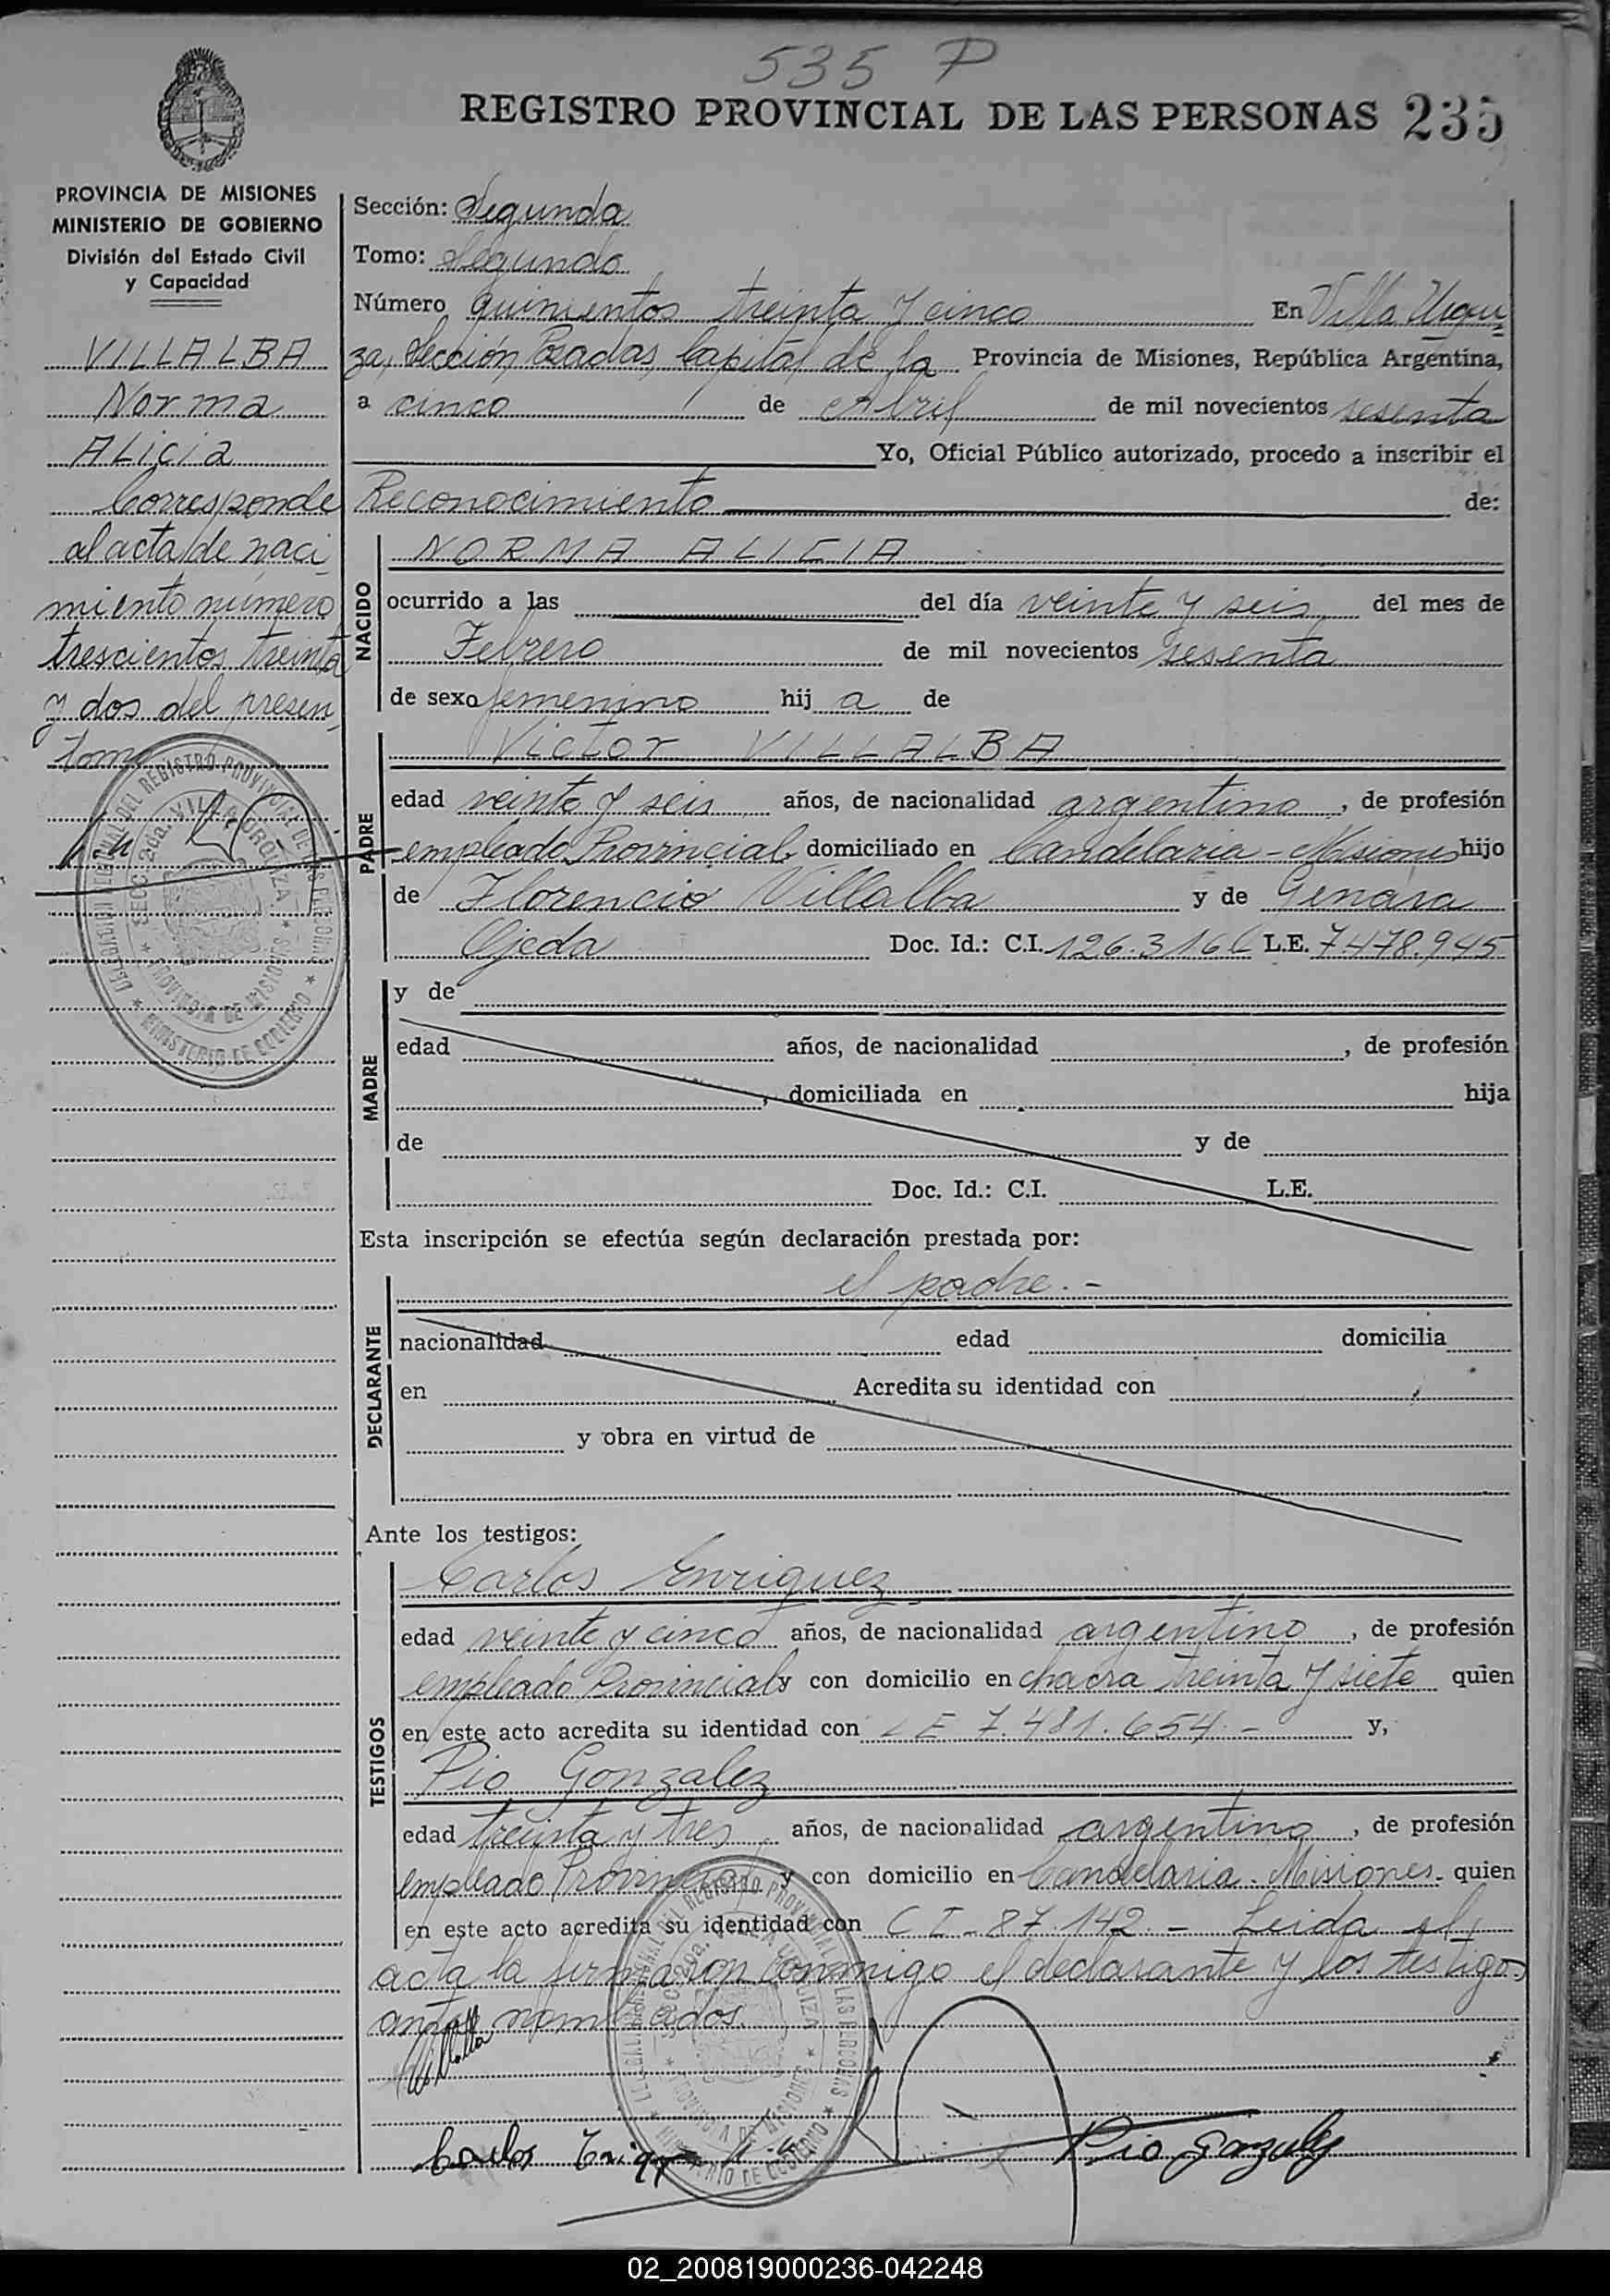 535 P
REGISTRO PROVINCIAL DE LAS PERSONAS 235
PROVINCIA DE MISIONES
MINISTERIO DE GOBIERNO
División del Estado Civil
y Capacidad
VILLALBA
Norma
ALicia
Corresponde
al acta de naci
miento número
trescientos treinta
y dos del presen
tomo
DELEGACION REGIONAL DEL REGISTRO PROVINCIAL DE LAS PERSONAS
SECC. 2da. VILLA URQUIZA
PROVINCIA DE MISIONES
MINISTERIO DE GOBIERNO
Sección: Segunda
Tomo: Segundo
Número quinientos treinta y cinco En Villa Urqui
za, Sección Posadas, Capital de la Provincia de Misiones, República Argentina,
a cinco de Abril de mil novecientos sesenta
Yo, Oficial Público autorizado, procedo a inscribir el
Reconocimiento de:
NACIDO
NORMA ALICIA
ocurrido a las del día veinte y seis del mes de
Febrero de mil novecientos sesenta
de sexo femenino hij a de
PADRE
Victor VILLALBA
edad veinte y seis años, de nacionalidad argentino, de profesión
empleado Provincial, domiciliado en Candelaria - Misiones hijo
de Florencio Villalba y de Genara
Ojeda Doc. Id.: C.I. 126.316 L.E. 7.478.945
MADRE
y de
edad años, de nacionalidad , de profesión
, domiciliada en hija
de y de
Doc. Id.: C.I. L.E.
Esta inscripción se efectúa según declaración prestada por:
el padre.-
DECLARANTE
nacionalidad edad domicilia
en Acredita su identidad con
y obra en virtud de
Ante los testigos:
TESTIGOS
Carlos Enriquez
edad veinte y cinco años, de nacionalidad argentino, de profesión
empleado Provincial y con domicilio en chacra treinta y siete quien
en este acto acredita su identidad con LE 7.481.654.- y,
Pio Gonzalez
edad treinta y tres años, de nacionalidad argentino, de profesión
empleado Provincial y con domicilio en Candelaria. Misiones. quien
en este acto acredita su identidad con C I - 87.142.- Leida el
acta la firmaron conmigo el declarante y los testigos
antes nombrados.
Villalba
Carlos Pio Gonzalez
02_200819000236-042248